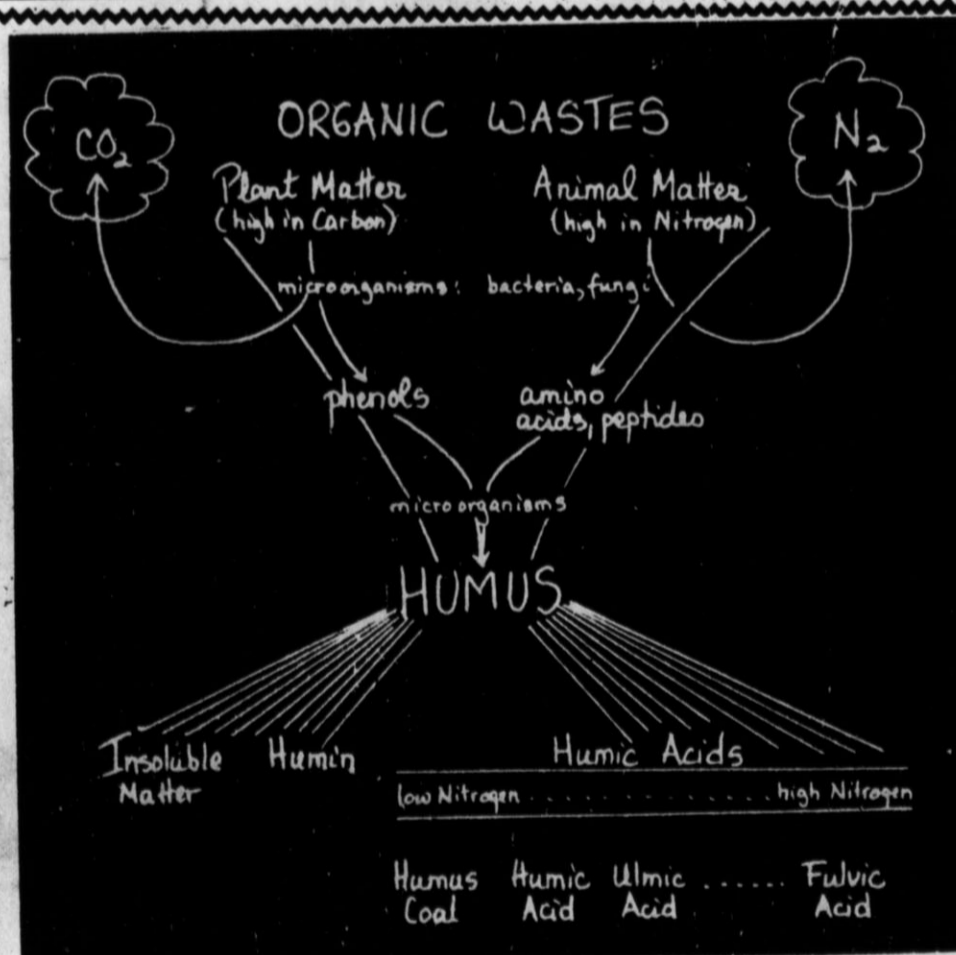 CO₂
ORGANIC WASTES
N₂
Plant Matter
(high in Carbon)
Animal Matter
(high in Nitrogen)
microorganisms: bacteria, fungi
phenols
amino
acids, peptides
microorganisms
HUMUS
Insoluble
Matter
Humin
Humic Acids
low Nitrogen . . . . . . . . . . . . . . high Nitrogen
Humus
Coal
Humic
Acid
Ulmic
Acid
......
Fulvic
Acid